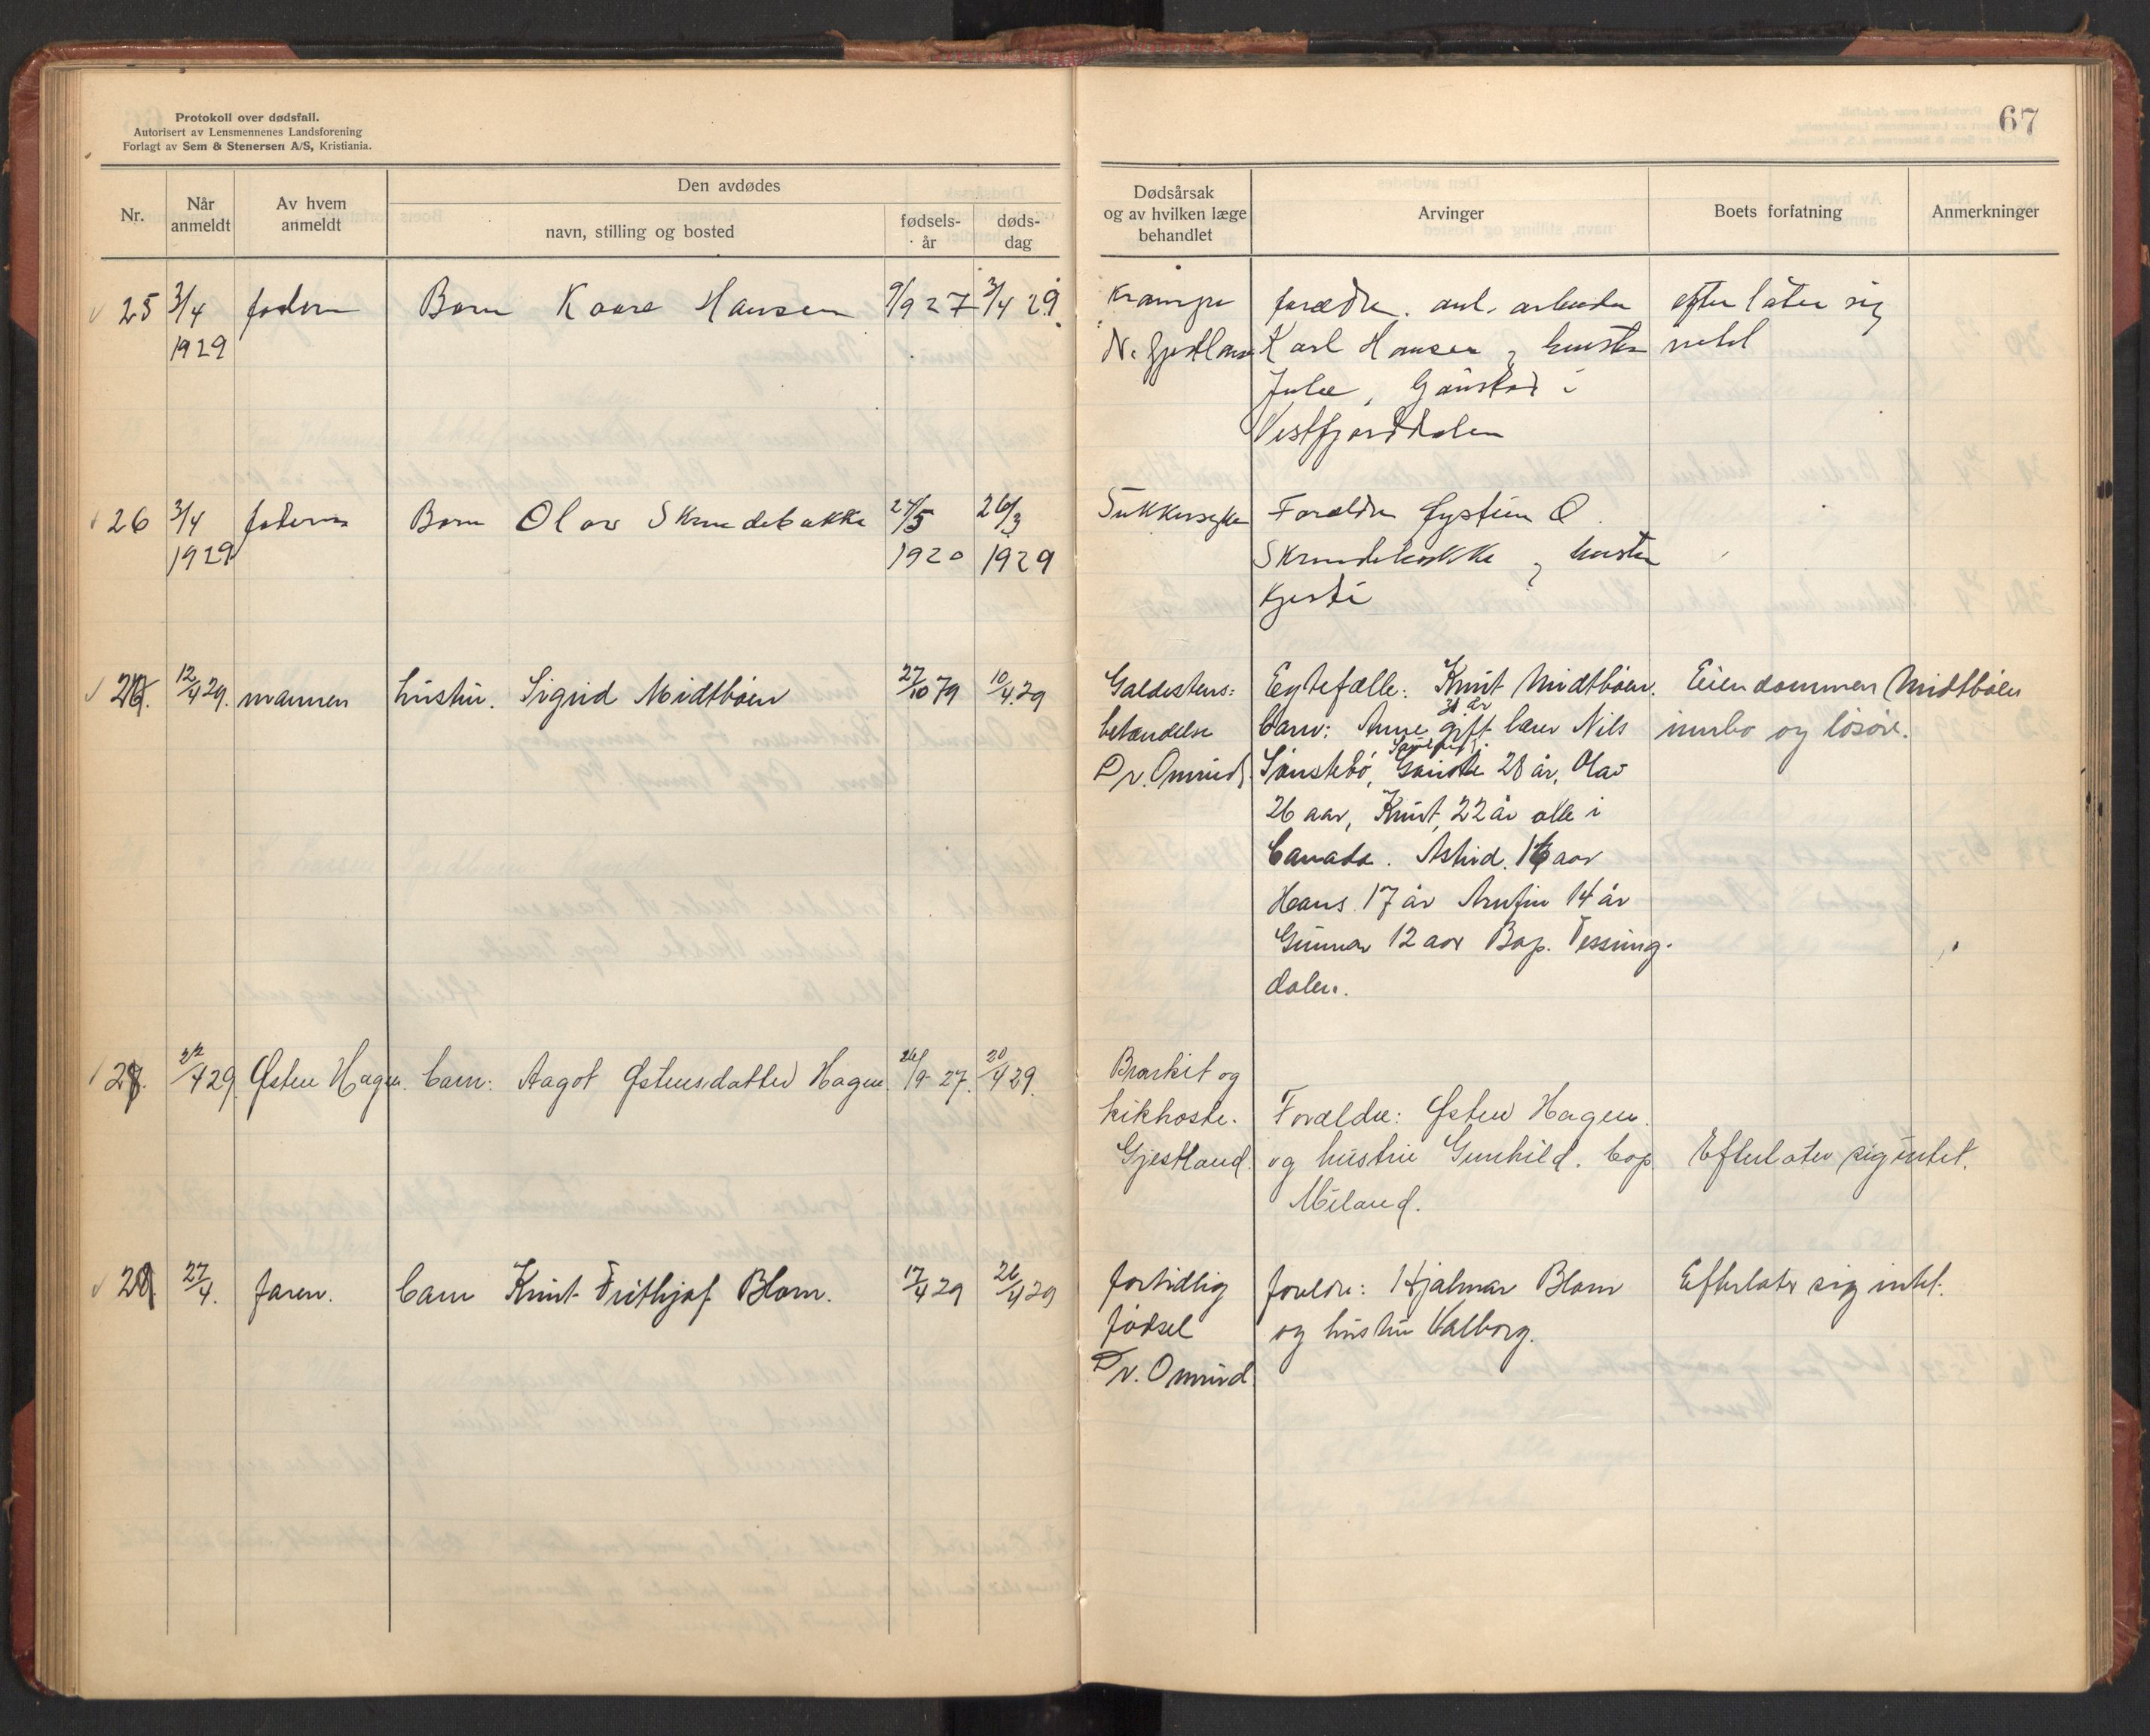 Protokoll over dødsfall.
Autorisert av Lensmennenes Landsforening
Forlagt av Sem & Stenersen A/S, Kristiania.
67
Nr.
Når anmeldt
Av hvem anmeldt
Den avdødes
navn, stilling og bosted
fødselsår
dødsdag
Dødsårsak og av hvilken læge behandlet
Arvinger
Boets forfatning
Anmerkninger
25 3/4 faderen Barn Kaare Hansen 9/9 27 3/4 29 Krampe forældre. anl. arbeider efterlåter sig
1929 N. Gjestland Karl Hansen og hustru intet
Julie, Gaustad i
Vestfjorddalen
26 3/4 faderen Barn Olav Skrudebakke 27/5 26/3 Sukkersyke Forældre Øystein O
1929 1920 1929 Skrudebakke og hustru
Kjersti
27. 12/4 29. mannen hustru. Sigrid Midtbøen 27/10 79 10/4 29 Galdestens= Egtefælle: Knut Midtbøen. Eiendommen Midtbøen
31 år
betændelse barn: Anne gift lærer Nils innbo og løsøre.
Dr. Omsrud Sønstebø, Gauste 28 år, Olav
26 aar, Knut, 22 år alle i
Canada. Astrid 16 aar
Hans 17 år Arnfin 14 år
Gunnar 12 aar Bop. Tessung-
dalen.
28. 22/4 29. Østen Hagen. barn: Aagot Østensdatter Hagen 26/9 27. 20/4 29. Bronkit og
kikhoste. Forældre: Østen Hagen
Gjestland. og hustru Gunhild. bop. Efterlater sig intet.
Miland.
29. 27/4. faren. barn Knut Frithjof Blom. 17/4 29 26/4 29 fortidlig foreldre: Hjalmar Blom Efterlater sig intet.
fødsel og hustru Valborg.
Dr. Omsrud